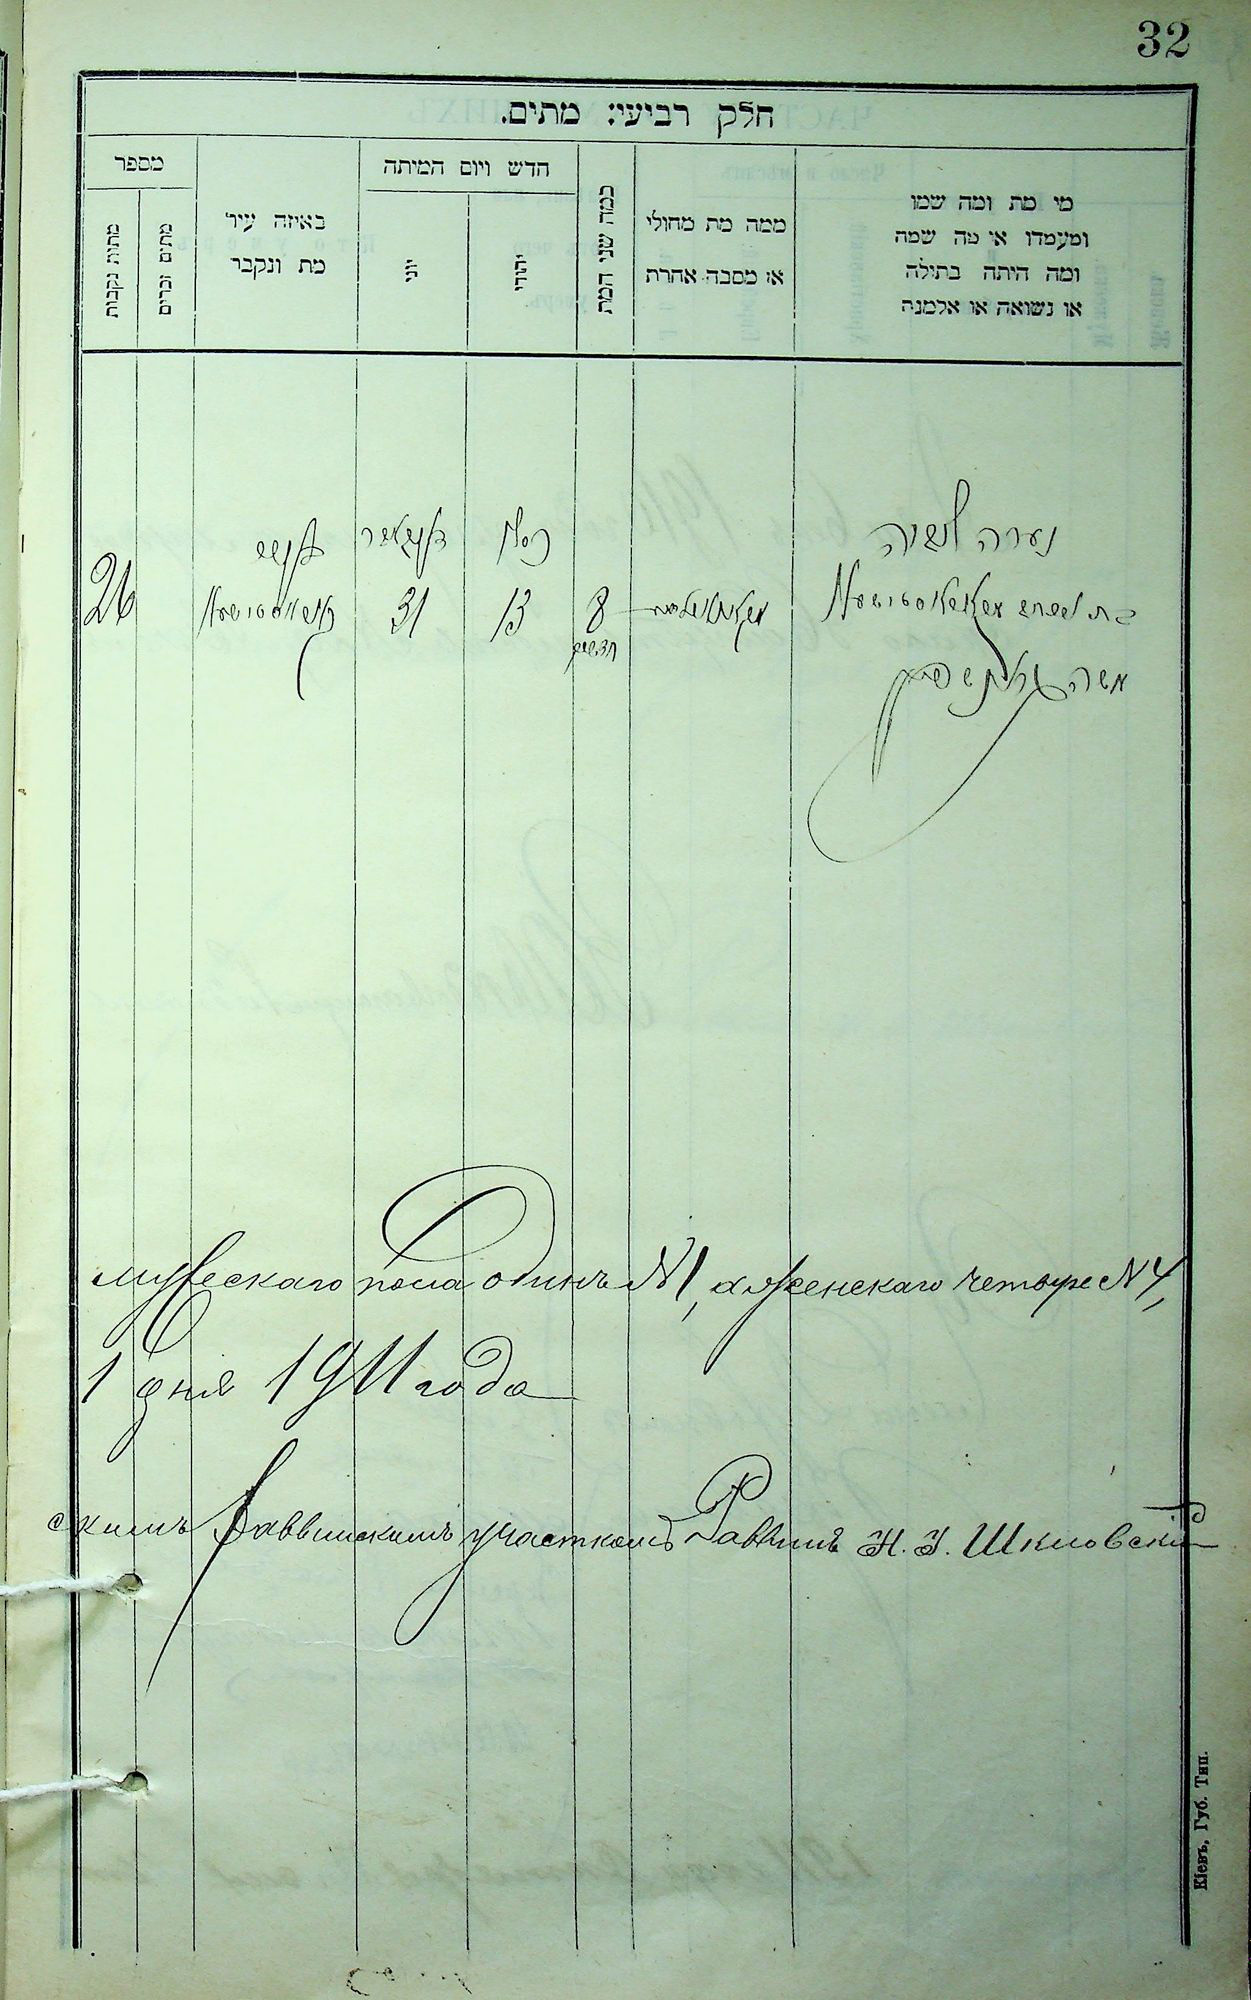 32
חלק רביעי: מתים.
מי מת ומה שמו
ומעמדו או מה שמה
ומה היתה בתולה
או נשואה או אלמנה
ממה מת מחולי
או מסבה אחרת
כמה שני המת
חדש ויום המיתה
יהודי
יוני
באיזה עיר
מת ונקבר
מספר
מתים זכרים
מתות נקבות
נערה
בת
משה
8
חדשים
13
31
26
мужескаго пола одинъ №1, а женскаго четыре №4,
1 дня 1911 года
скимъ Раввинскимъ участкомъ Раввинъ Шкловскій
Кіевъ, Губ. Тип.